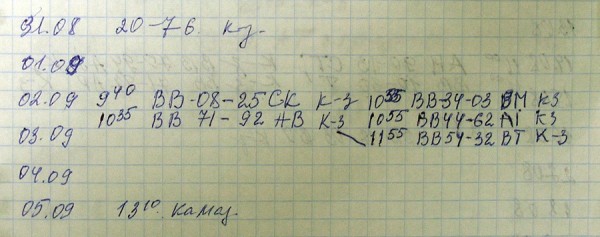 31.08 20-76 кз.
01.09
02.09 9⁴⁰ ВВ-08-25 СК К-з 10⁵⁵ ВВ-34-03 ВМ КЗ
10³⁵ ВВ 71-92 АВ К-з 10⁵⁵ ВВ44-62 АІ КЗ
03.09 11⁵⁵ ВВ54-32 ВТ К-З
04.09
05.09 13¹⁰ Камаз.